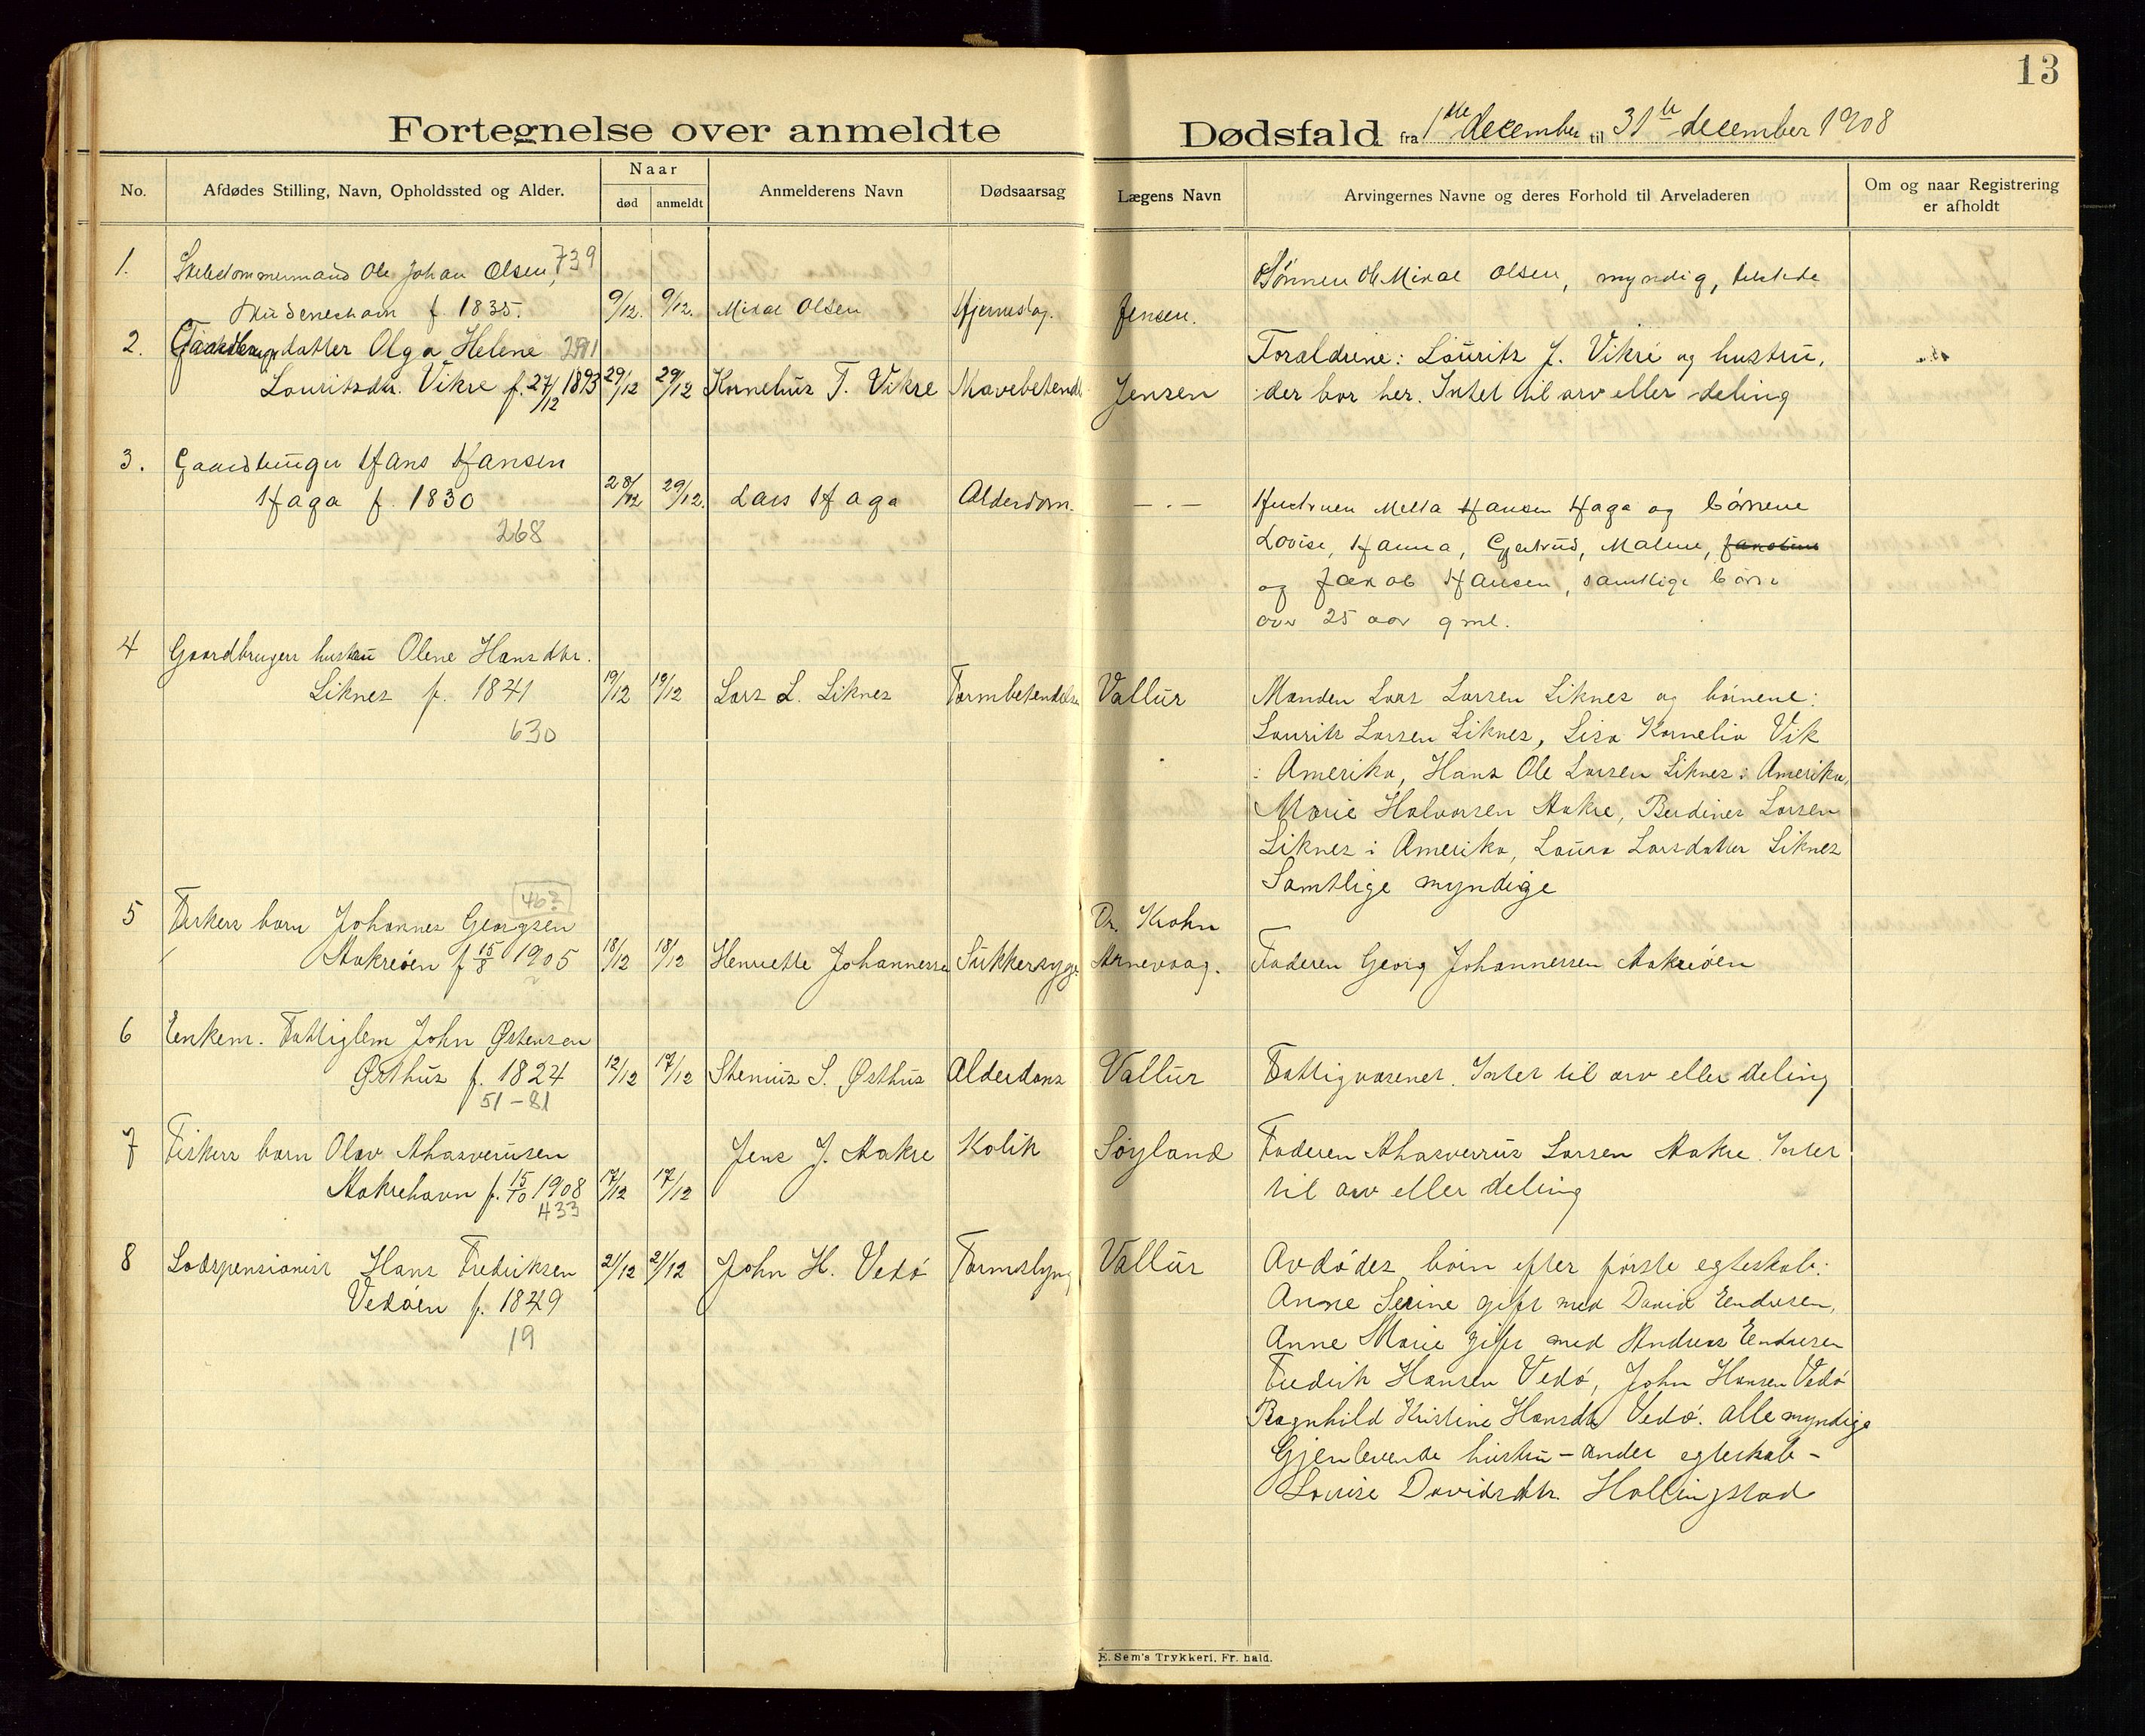 13
Fortegnelse over anmeldte Dødsfald fra 1ste december til 31te december 1908
No. Afdødes Stilling, Navn, Opholdssted og Alder. Naar død anmeldt Anmelderens Navn Dødsaarsag Lægens Navn Arvingernes Navne og deres Forhold til Arveladeren Om og naar Registrering er afholdt
1. Skibstømmermand Ole Johan Olsen, 739 Sønnen Mikal Olsen, myndig, tilstede
Skudeneshavn f. 1835. 9/12. 9/12. Mikal Olsen Hjerneslag. Jensen.
2. datter Olga Helene Forældrene: Lauritz J. Vikre og hustru,
Lauritsdtr. Vikre f. 27/12 1893 29/12 29/12 Kornelius T. Vikre Mavebetend. Jensen der bor her. Intet til arv eller deling
3. Gaardbruger Hans Hansen
Haga f. 1830 28/12 29/12. Lars Haga Alderdom. — . — Hustruen Mella Hansen Haga og børnene
268 Lovise, Hanna, Gjertrud, Malene,
og Jakob Hansen, samtlige børn
over 25 aar gml.
4 Gaardbrugers hustru Olene Hansdtr.
Liknes f. 1841 19/12 19/12 Lars L. Liknes Tarmbetendelse Vallur Manden Lars Larsen Liknes og børnene:
630 Laurits Larsen Liknes, Lisa Kornelia Vik
i Amerika, Hans Ole Larsen Liknes i Amerika,
Marie Halvorsen Aakre, Berdines Larsen
Liknes i Amerika, Laura Larsdatter Liknes
Samtlige myndige
467
5 Fiskers barn Johannes Georgsen Dr. Krohn
Aakreøen f. 15/8 1905 18/12 18/12 Henriette Johannessen Sukkersyge Arnevaag. Faderen Georg Johannessen Aakreøen
6 Enkem. Fattiglem John Østensen
Østhus f. 1824 12/12 17/12 Stenius S. Østhus Alderdoms Vallur Fattigvæsenet. Intet til arv eller deling
51-81
7 Fiskers barn Olav Ahasverusen Jens J. Aakre Kolik Søyland Faderen Ahasverus Larsen Aakre. Intet
Aakrehavn f. 15/10 1908 17/12 17/12 til arv eller deling
433
8 Lodspensionist Hans Fredriksen 21/12 21/12 John H. Vedø Tarmslyng Vallur Avdødes børn efter første egteskab:
Vedøen f. 1849 Anne Serine gift med David Endresen,
19 Anne Marie gift med Andreas Endresen
Fredrik Hansen Vedø, John Hansen Vedø
Ragnhild Kristine Hansdtr Vedø. alle myndige
Gjenlevende hustru - andet egteskab -
Lovise Davidsdtr. Hollingstad
E. Sem's Trykkeri, Fr. hald.